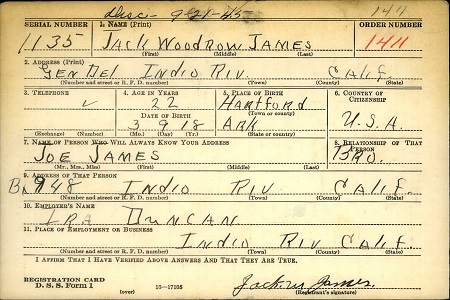 Disc- 9-21-45 144
SERIAL NUMBER 1. NAME (Print) ORDER NUMBER
1135 JACK WOODROW JAMES 1411
(First) (Middle) (Last)
2. ADDRESS (Print)
GEN DEL INDIO RIV. CALIF.
(Number and street or R. F. D. number) (Town) (County) (State)
3. TELEPHONE 4. AGE IN YEARS 5. PLACE OF BIRTH 6. COUNTRY OF CITIZENSHIP
22 Hartford
DATE OF BIRTH (Town or county)
3 9 18 Ark. U.S.A.
(Exchange) (Number) (Mo.) (Day) (Yr.) (State or country)
7. NAME OF PERSON WHO WILL ALWAYS KNOW YOUR ADDRESS 8. RELATIONSHIP OF THAT PERSON
JOE JAMES BRO.
(Mr., Mrs., Miss) (First) (Middle) (Last)
9. ADDRESS OF THAT PERSON
948 INDIO RIV CALIF.
(Number and street or R. F. D. number) (Town) (County) (State)
10. EMPLOYER'S NAME
IRA DUNCAN
11. PLACE OF EMPLOYMENT OR BUSINESS
INDIO RIV CALIF.
(Number and street or R. F. D. number) (Town) (County) (State)
I AFFIRM THAT I HAVE VERIFIED ABOVE ANSWERS AND THAT THEY ARE TRUE.
REGISTRATION CARD
D. S. S. Form 1 (over) 16-17105 Jack W James
(Registrant's signature)